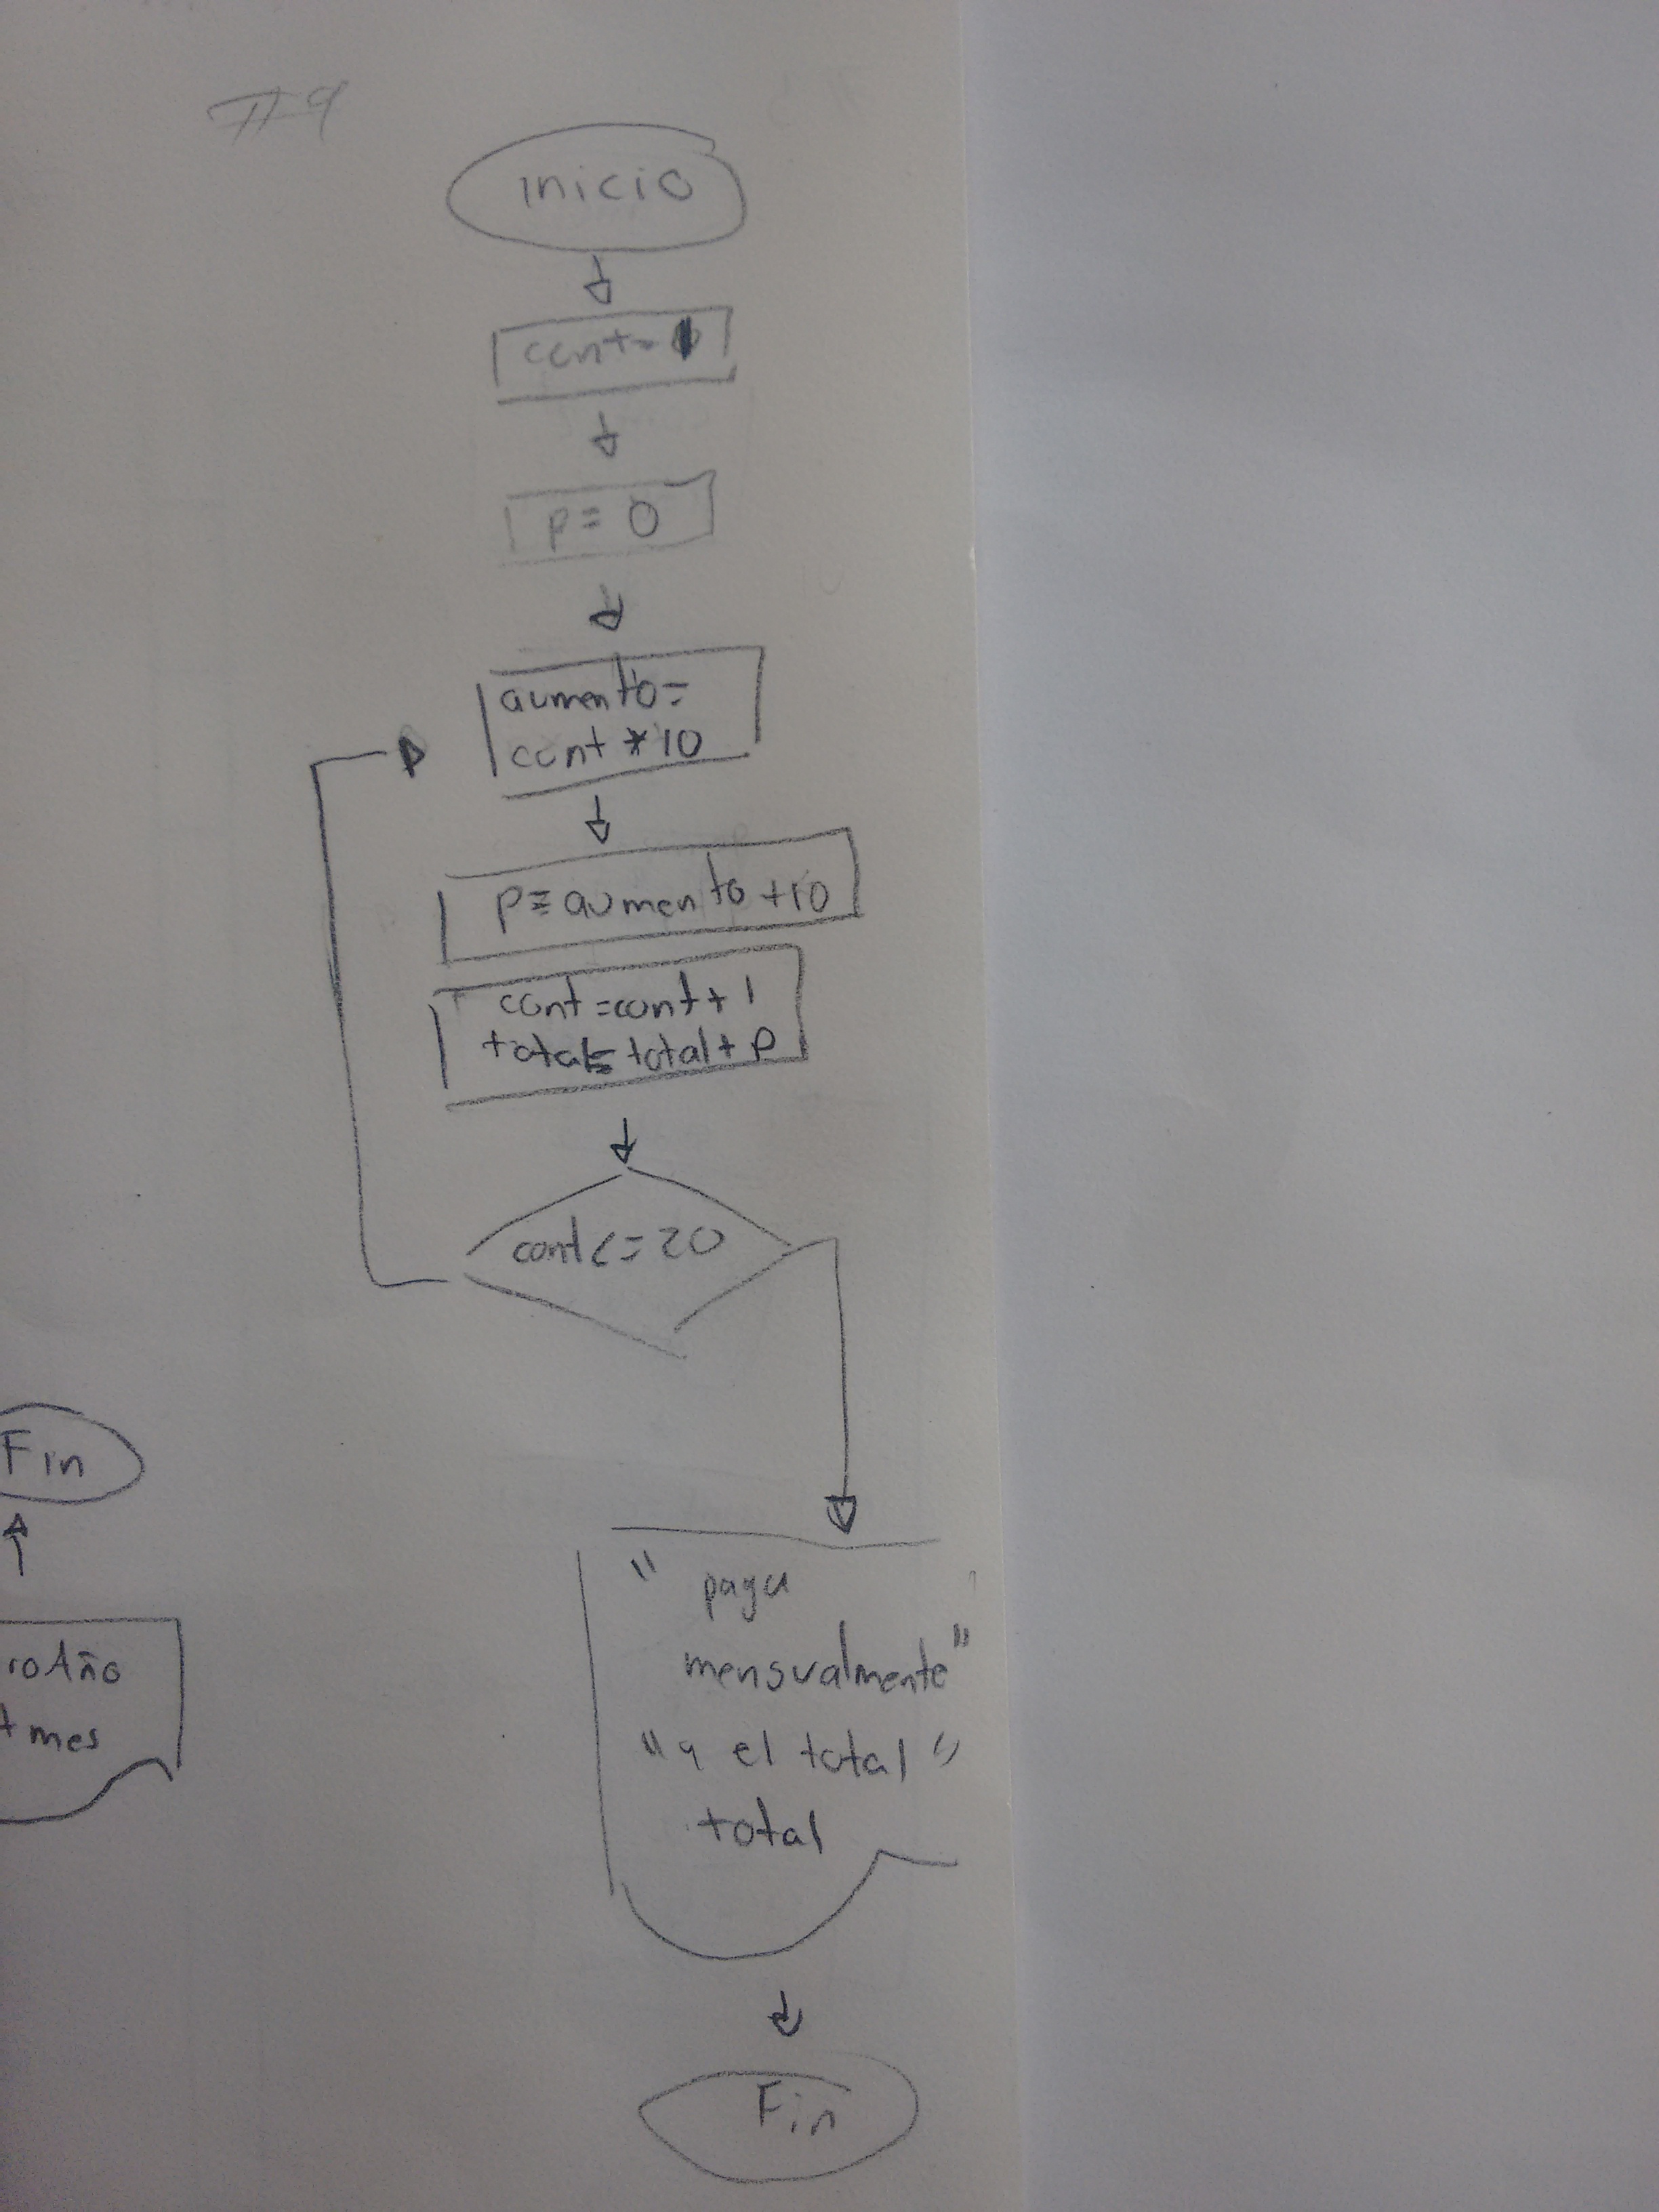 #9
Inicio
cont=
p= 0
aumento=
cont *10
p=aumento +10
cont =cont+1
total= total+ p
cont<=20
" paga
mensualmente"
"y el total"
total
Fin
Fin
roAño
+ mes